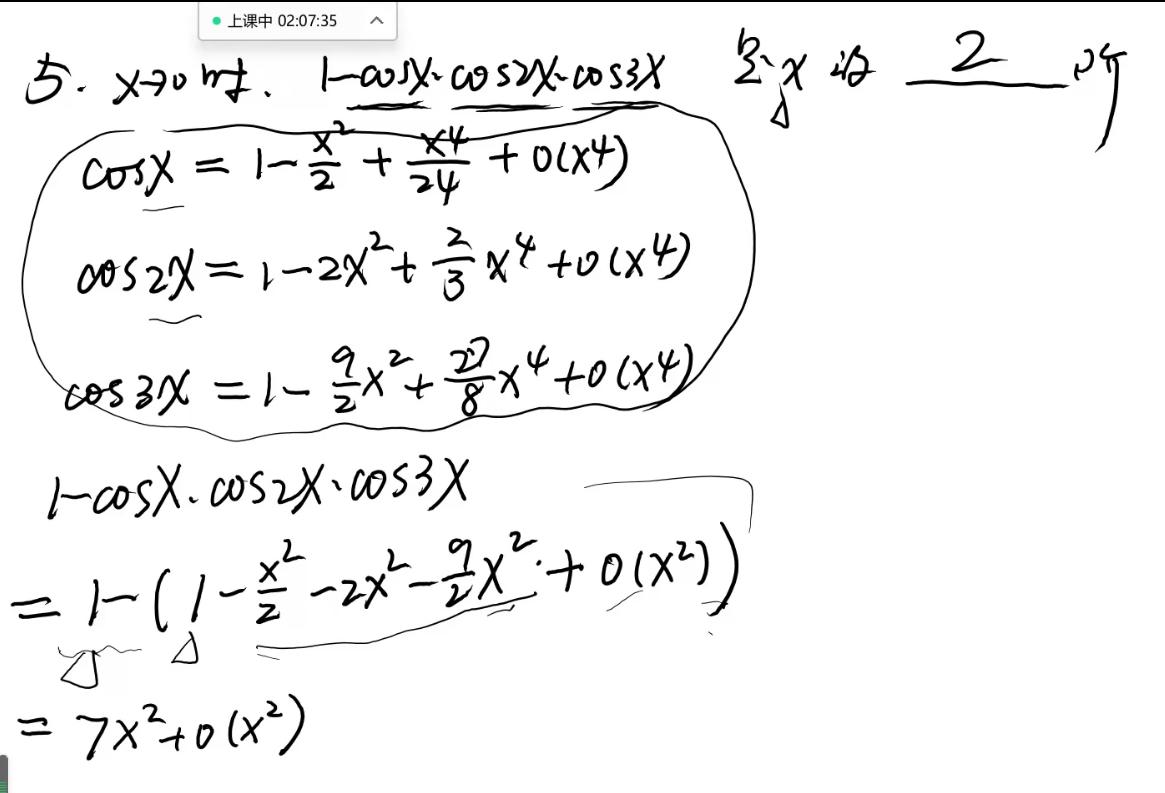 上课中 02:07:35
5. x→0 时. 1-cosx·cos2x·cos3x 是 x 的 2 阶
cosx = 1 - x²/2 + x⁴/24 + o(x⁴)
cos2x = 1 - 2x² + 2/3 x⁴ + o(x⁴)
cos3x = 1 - 9/2 x² + 27/8 x⁴ + o(x⁴)
1-cosx·cos2x·cos3x
= 1 - (1 - x²/2 - 2x² - 9/2 x² + o(x²))
= 7x² + o(x²)